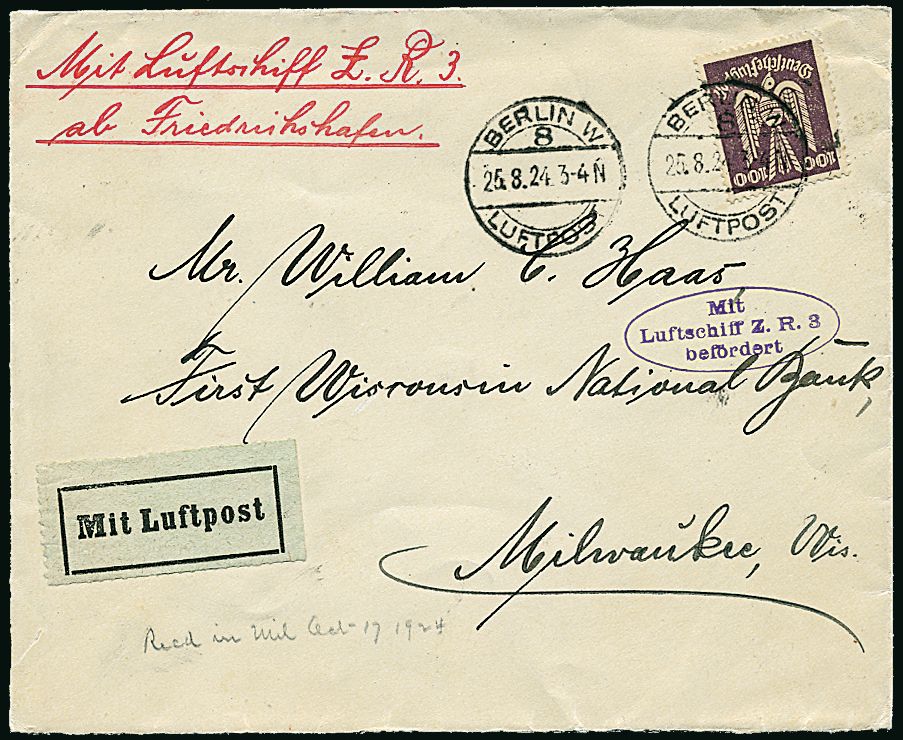 Mit Luftschiff Z. R. 3.
ab Friedrichshafen.
BERLIN W
8
25.8.24.3-4 N
LUFTPOST
BERLIN W
8
25.8.24.3-4 N
LUFTPOST
Deutsche Flugpost
100 100
Mr. William C. Haas,
Mit
Luftschiff Z. R. 3
befördert
First Wisconsin National Bank,
Mit Luftpost
Milwaukee, Wis.
Recd in Mil Oct 17 1924